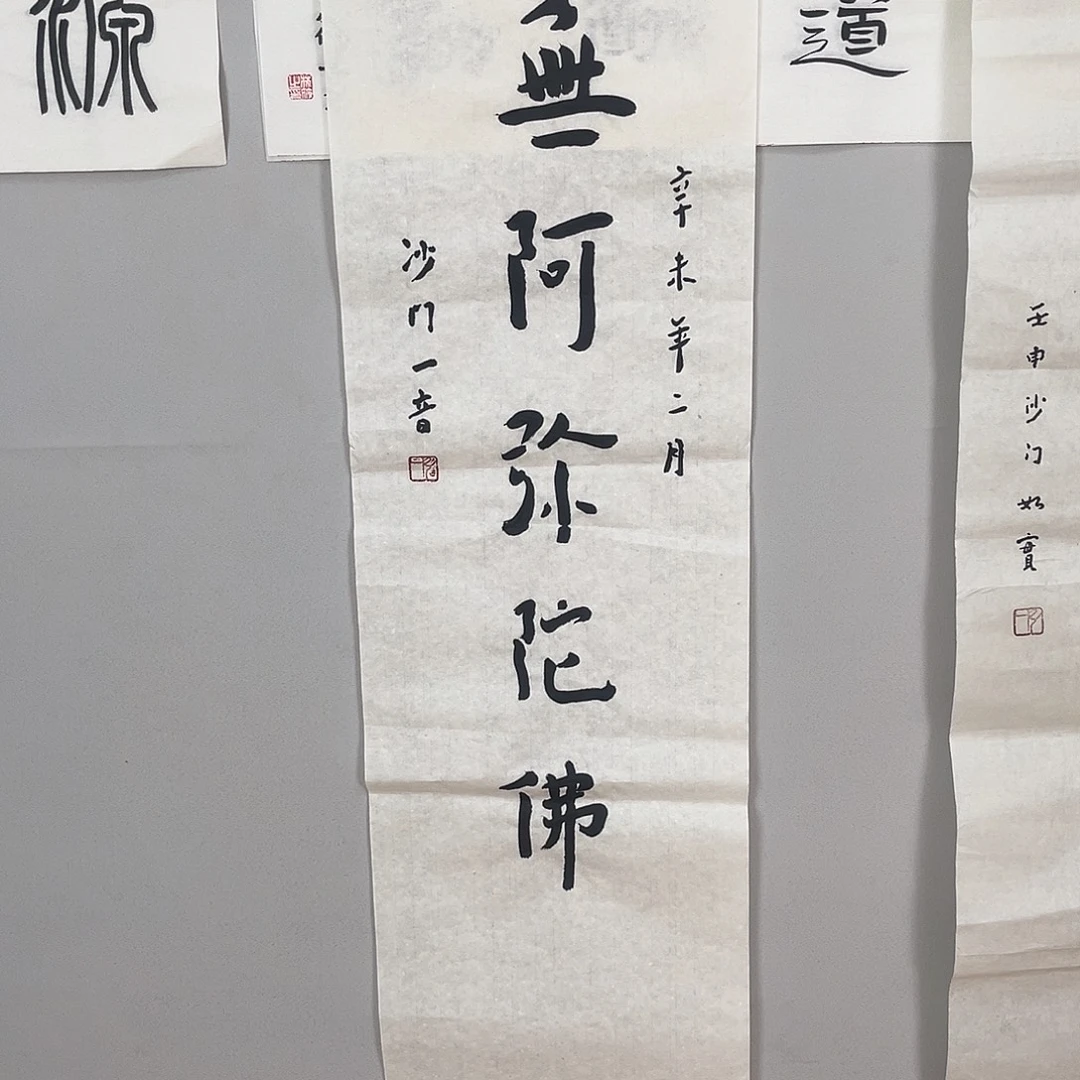 源
道
無阿弥陀佛
辛未年二月
沙門一音
壬申沙门如實